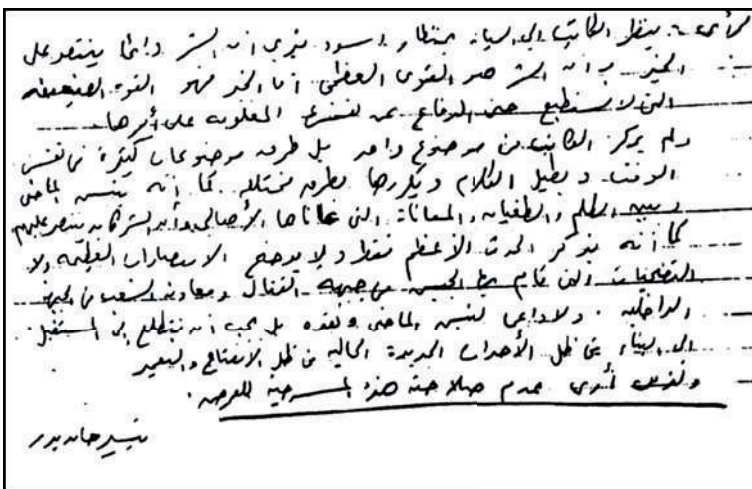 الرأى : ينظر الكاتب إلى الحياة بمنظار أسود فيرى أن الشر دائما ينتصر على
الخير بأن الشر هو القوى العظمى أما الخير فهو القوة الضعيفة
التى لا تستطيع حتى الدفاع عن نفسها المغلوبة على أمرها
ولم يركز الكاتب من موضوع واحد بل طرق موضوعات كثيرة فى نفس
الوقت ويطيل الكلام ويكررها بطرق مختلفة كما أنه ينبش الماضى
الظلم والطغيان والمعاناة التى عاناها الأهالى وأن الشر كان ينتصر عليهم
كما أنه يذكر الحدث الأعظم فقط ولا يوضح الانتصارات العظيمة ولا
التضحيات التى قام بها الجيش من جبهة القتال ومعاونة الشعب من الجبهة
الداخلية . ولا داعى لنبش الماضى ونقده بل يجب أن نتطلع إلى المستقبل
إلى البناء فى ظل الأحداث الجديدة الحالية فى ظل الانفتاح والتعمير
ولذلك أرى عدم صلاحية هذه المسرحية للعرض .